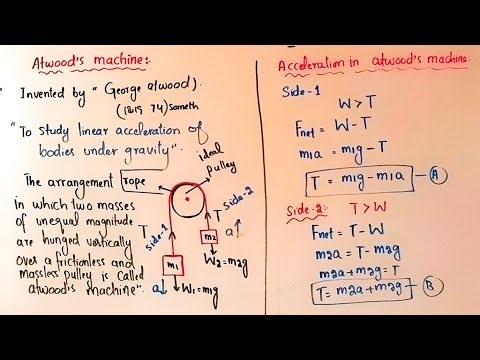 Atwood's machine:-
Invented by "George atwood).
"To study linear acceleration of
bodies under gravity".
The arrangement
in which two masses
of unequal magnitude
are hunged vertically
over a frictionless and
massless pulley is Called
atwood's machine".
rope
ideal
pulley
T
side-1
T
side-2
a
m1
m2
a
W1=m1g
W2=m2g
Acceleration in atwood's machine:
Side-1
W>T
Fnet = W-T
m1a = m1g-T
T = m1g-m1a
A
Side-2: T>W
Fnet = T-W
m2a = T-m2g
m2a+m2g=T
T=m2a+m2g
B